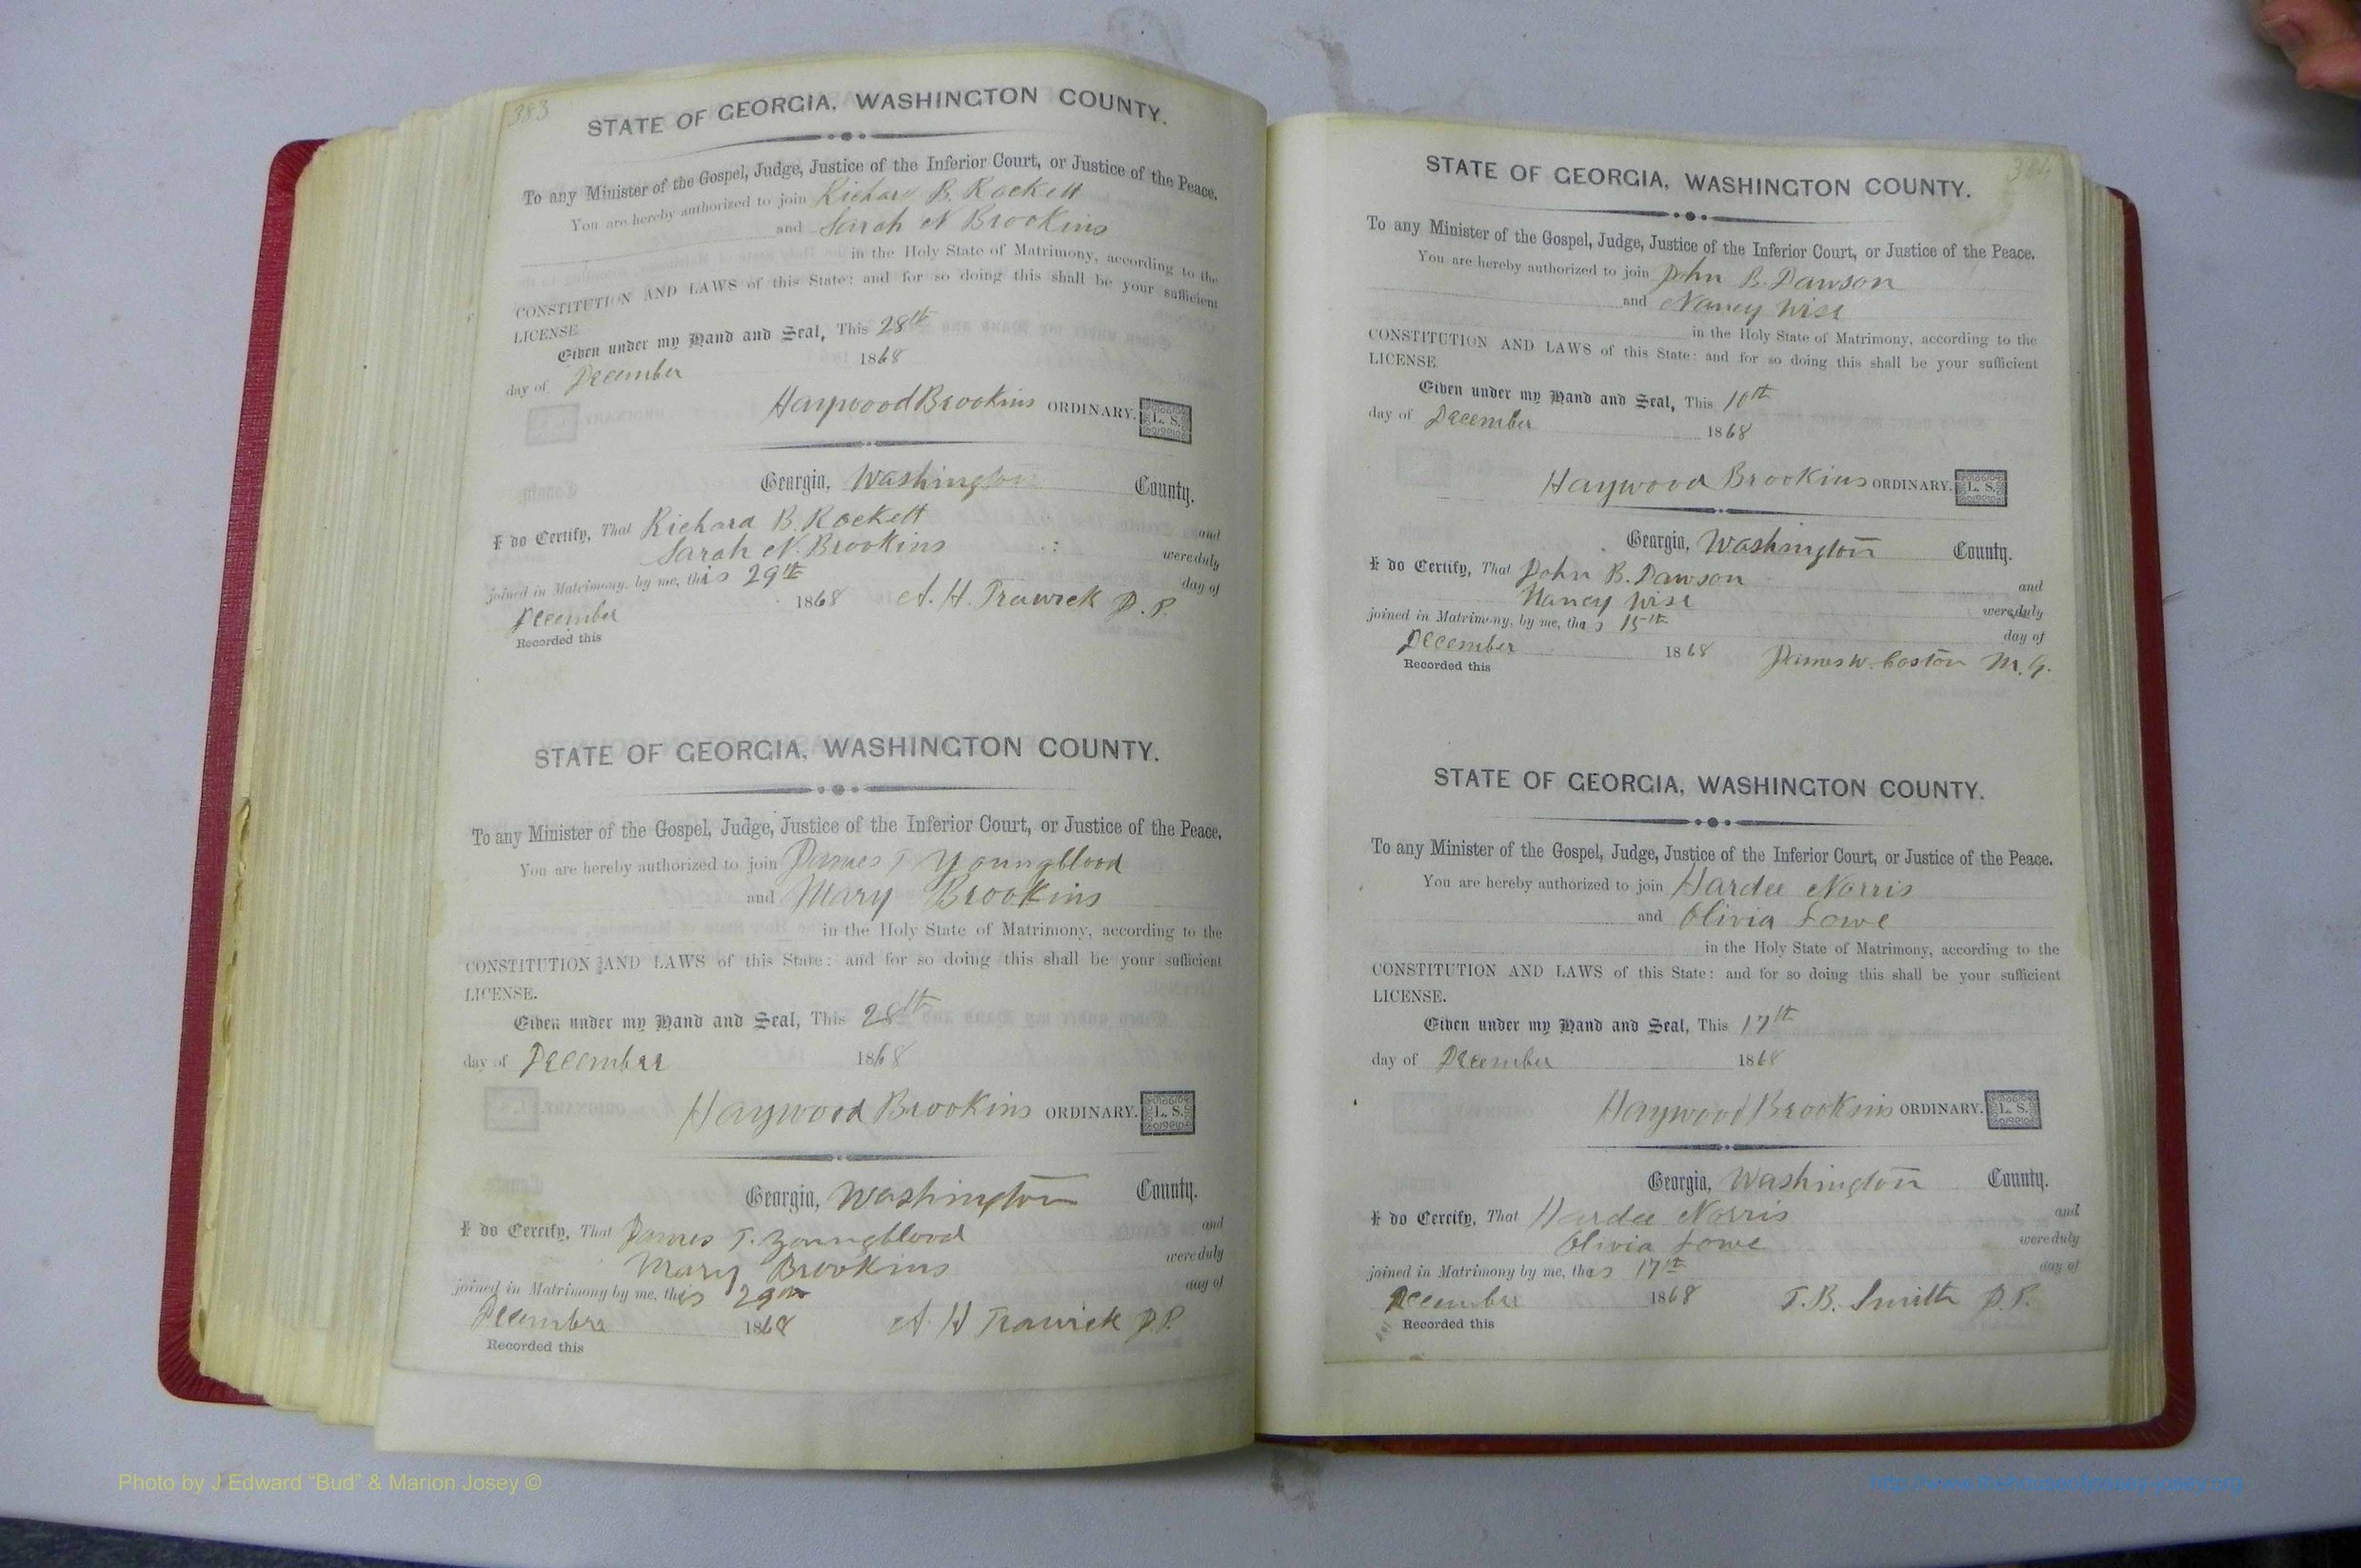 383
STATE OF GEORGIA, WASHINGTON COUNTY.
To any Minister of the Gospel, Judge, Justice of the Inferior Court, or Justice of the Peace.
You are hereby authorized to join Richard B. Rockett
and Sarah N Brookins
in the Holy State of Matrimony, according to the
CONSTITUTION AND LAWS of this State: and for so doing this shall be your sufficient
LICENSE.
Given under my Hand and Seal, This 28th
day of December 1868
Haywood Brookins ORDINARY. L. S.
Georgia, Washington County.
I do Certify, That Richard B. Rockett and
Sarah N. Brookins were duly
joined in Matrimony, by me, this 29th day of
December 1868 A. H. Trawick J. P.
Recorded this
STATE OF GEORGIA, WASHINGTON COUNTY.
To any Minister of the Gospel, Judge, Justice of the Inferior Court, or Justice of the Peace.
You are hereby authorized to join James T Youngblood
and Mary Brookins
in the Holy State of Matrimony, according to the
CONSTITUTION AND LAWS of this State: and for so doing this shall be your sufficient
LICENSE.
Given under my Hand and Seal, This 28th
day of December 1868
Haywood Brookins ORDINARY. L. S.
Georgia, Washington County.
I do Cercify, That James T. Youngblood and
Mary Brookins were duly
joined in Matrimony by me, this 29th day of
December 1868 A. H Trawick J.P.
Recorded this
384
STATE OF GEORGIA, WASHINGTON COUNTY.
To any Minister of the Gospel, Judge, Justice of the Inferior Court, or Justice of the Peace.
You are hereby authorized to join John B. Dawson
and Nancy Wise
in the Holy State of Matrimony, according to the
CONSTITUTION AND LAWS of this State: and for so doing this shall be your sufficient
LICENSE.
Given under my Hand and Seal, This 10th
day of December 1868
Haywood Brookins ORDINARY. L. S.
Georgia, Washington County.
I do Certify, That John B. Dawson and
Nancy Wise were duly
joined in Matrimony, by me, this 15th day of
December 1868 James W. Coston M. G.
Recorded this
STATE OF GEORGIA, WASHINGTON COUNTY.
To any Minister of the Gospel, Judge, Justice of the Inferior Court, or Justice of the Peace.
You are hereby authorized to join Hardee Norris
and Olivia Lowe
in the Holy State of Matrimony, according to the
CONSTITUTION AND LAWS of this State: and for so doing this shall be your sufficient
LICENSE.
Given under my Hand and Seal, This 17th
day of December 1868
Haywood Brookins ORDINARY. L. S.
Georgia, Washington County.
I do Cercify, That Hardee Norris and
Olivia Lowe were duly
joined in Matrimony by me, this 17th day of
December 1868 T. B. Smith J. P.
Recorded this
Photo by J Edward “Bud” & Marion Josey ©